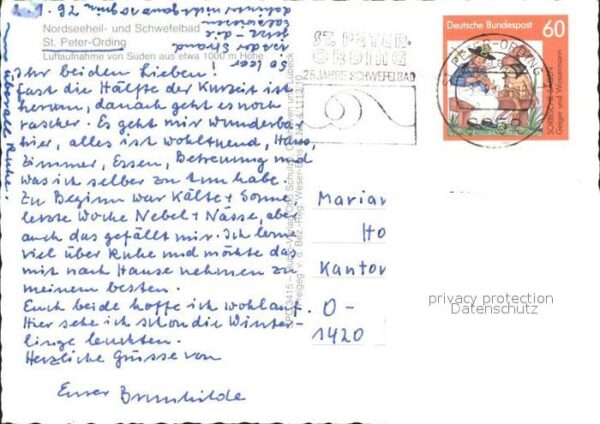 Nordseeheil- und Schwefelbad
St. Peter-Ording
Luftaufnahme von Süden aus etwa 1000 m Höhe
Ihr beiden Lieben!
Fast die Hälfte der Kurzeit ist
herum, danach geht es noch
rascher. Es geht mir wunderbar
hier, alles ist wohltuend, Haus,
Zimmer, Essen, Betreuung und
was ich selber zu tun habe.
Zu Beginn war Kälte + Sonne
letzte Woche Nebel + Nässe, aber
auch das gefällt mir. Ich lerne
viel über Ruhe und möchte das
mit nach Hause nehmen zu
meinem besten.
Euch beide hoffe ich wohlauf.
Hier sehe ich schon die Winter-
linge leuchten.
Herzliche Grüsse von
Eurer Brunhilde
So leer
ist der Strand
jetzt - die
überall Ruhe.
ST. PETER-
ORDING
25 JAHRE SCHWEFELBAD
Deutsche Bundespost
60
SORBISCHE SAGEN
Geiger und Wassermann
Marian
Ho
Kantor
O-
1420
privacy protection
Datenschutz